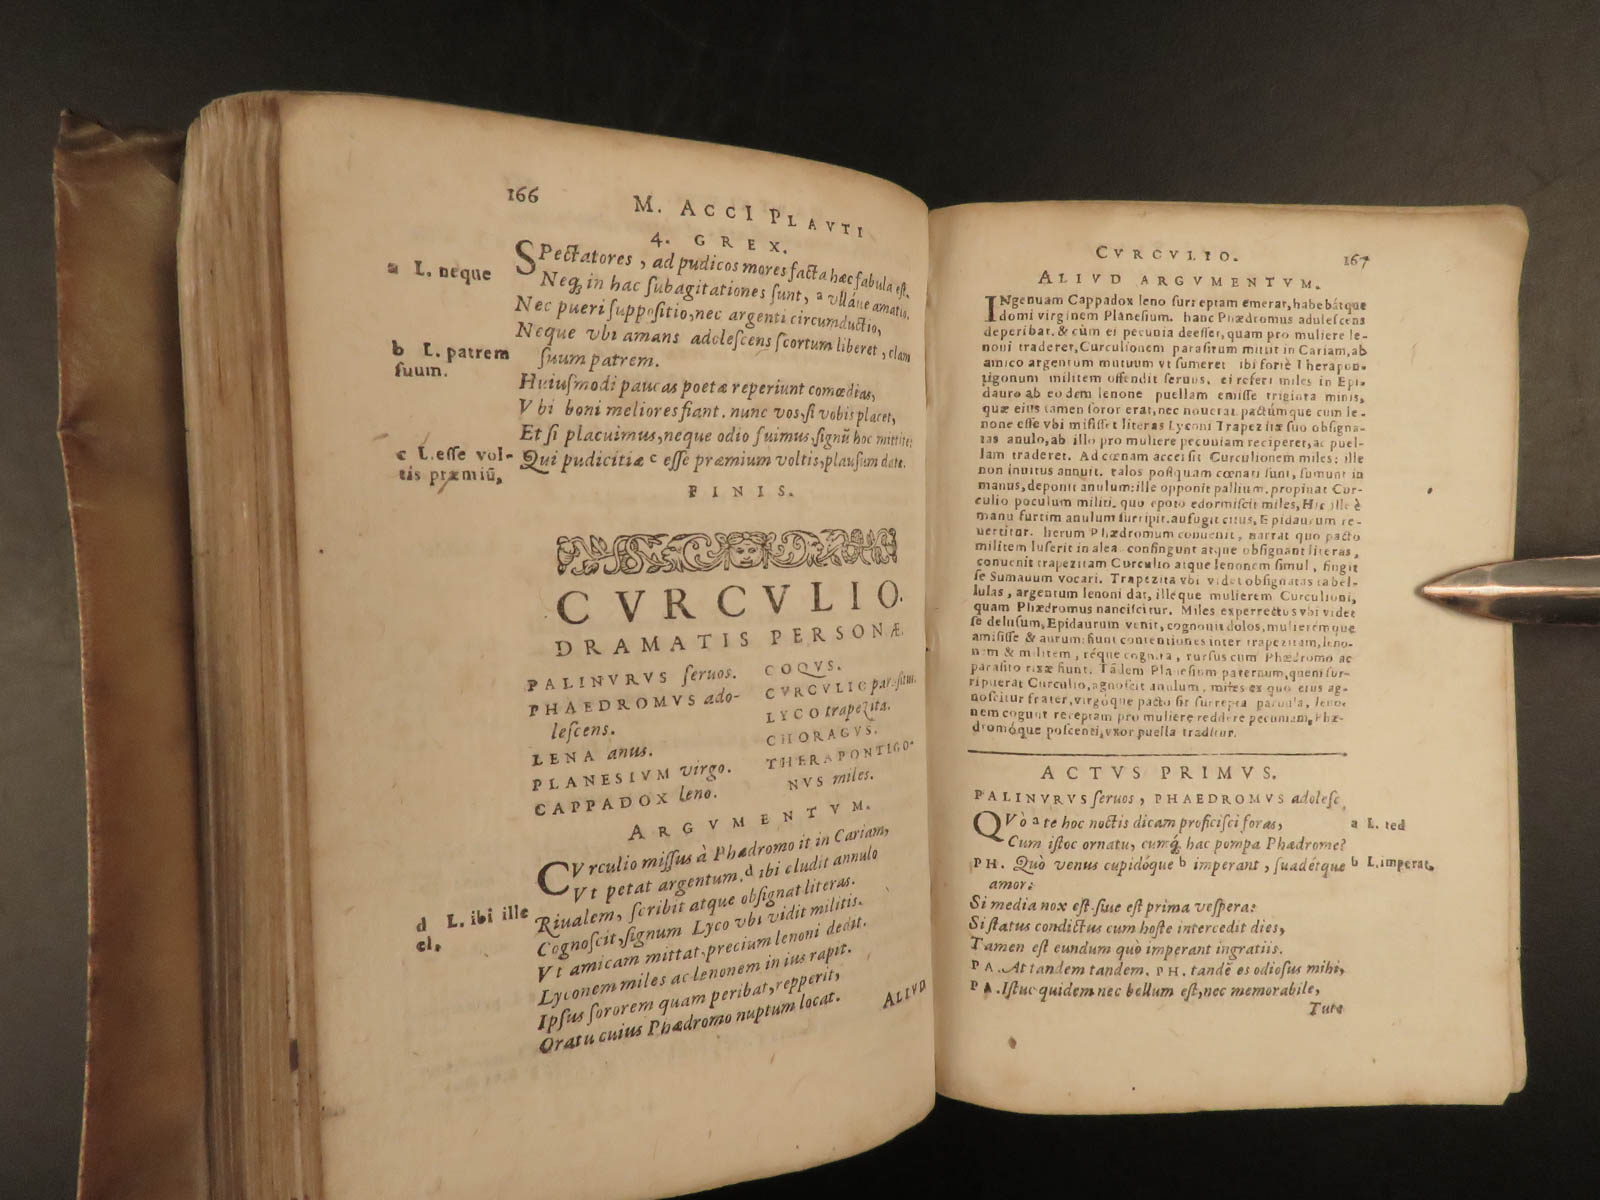 166
M. ACCI PLAVTI
4. GREX.
SPectatores, ad pudicos mores facta hæc fabula est.
a L. neque
Neq; in hac subagitationes sunt, a vlláue amatio.
Nec pueri suppositio, nec argenti circumductio,
Neque vbi amans adolescens scortum liberet, clam
b L. patrem
suum.
suum patrem.
Huiusmodi paucas poetæ reperiunt comœdias,
Vbi boni meliores fiant. nunc vos, si vobis placet,
Et si placuimus, neque odio fuimus, signū hoc mittite:
c L. esse vol-
tis præmiū,
Qui pudicitiæ c esse præmium voltis, plausum date.
FINIS.
CVRCVLIO.
DRAMATIS PERSONÆ.
PALINVRVS seruos.
PHAEDROMVS ado-
lescens.
LENA anus.
PLANESIVM virgo.
CAPPADOX leno.
COQVS.
CVRCVLIO parasitus.
LYCO trapezita.
CHORAGVS.
THERAPONTIGO-
NVS miles.
ARGVMENTVM.
CVrculio missus à Phædromo it in Cariam,
Vt petat argentum. d ibi eludit annulo
d L. ibi ille
el.
Riualem, scribit atque obsignat literas.
Cognoscit, signum Lyco vbi vidit militis.
Vt amicam mittat, precium lenoni dedit.
Lyconem miles ac lenonem in ius rapit.
Ipsus sororem quam peribat, repperit,
Oratu cuius Phædromo nuptum locat.
ALIVD
CVRCVLIO.
167
ALIVD ARGVMENTVM.
INgenuam Cappadox leno surreptam emerat, habebátque
domi virginem Planesium. hanc Phædromus adulescens
deperibat. & cùm ei pecunia deesset, quam pro muliere le-
noni traderet, Curculionem parasitum mittit in Cariam, ab
amico argentum mutuum vt sumeret ibi fortè Therapon-
tigonum militem offendit seruus. ei refert miles in Epi-
dauro ab eodem lenone puellam emisse triginta minis,
quæ eius tamen soror erat, nec nouerat. pactúmque cum le-
none esse vbi misisset literas Lyconi Trapezitæ suo obsigna-
tas anulo, ab illo pro muliere pecuniam reciperet, ac puel-
lam traderet. Ad cœnam accersit Curculionem miles: ille
non inuitus annuit. talos postquam cœnati sunt, sumunt in
manus, deponit anulum: ille opponit pallium. propinat Cur-
culio poculum militi. quo epoto edormiscit miles, Hic ille è
manu furtim anulum surripit. aufugit citus, Epidaurum re-
uertitur. Iterum Phædromum conuenit, narrat quo pacto
militem luserit in alea. confingunt atque obsignant literas,
conuenit trapezitam Curculio atque lenonem simul, fingit
se Sumanum vocari. Trapezita vbi videt obsignatas tabel-
lulas, argentum lenoni dat, illeque mulierem Curculioni,
quam Phædromus nanciscitur. Miles experrectus vbi videt
se delusum, Epidaurum venit, cognouit dolos, mulierémque
amisisse & aurum: fiunt contentiones inter trapezitam, leno-
nem & militem, réque cognita, rursus cum Phædromo ac
parasito rixæ fiunt. Tādem Planesium paternum, quem sur-
ripuerat Curculio, agnoscit anulum, miles ex quo eius ag-
noscitur frater, virgóque pacto sit surrepta paruula, leno-
nem cogunt receptam pro muliere reddere pecuniam, Phæ-
dromóque poscenti, vxor puella traditur.
ACTVS PRIMVS.
PALINVRVS seruos, PHAEDROMVS adolesc.
QVò a te hoc noctis dicam proficisci foras,
a L. ted
Cum istoc ornatu, cumq; hac pompa Phædrome?
PH. Quò venus cupidóque b imperant, suadétque
b L. imperat,
amor:
Si media nox est. siue est prima vespera:
Si status condictus cum hoste intercedit dies,
Tamen est eundum quò imperant ingratiis.
PA. At tandem tandem. PH. tandē es odiosus mihi,
PA. Istuc quidem nec bellum est, nec memorabile,
Tute